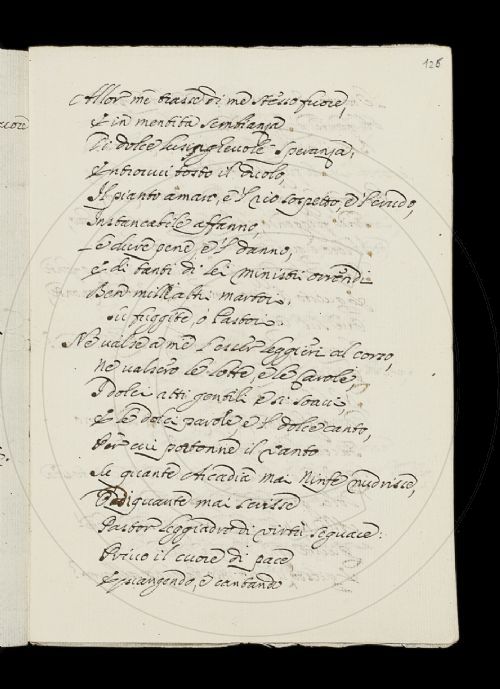 126
Allor me trasse di me stesso fuore,
E in mentita sembianza
Di dolce lusinghevole speranza,
Entrovvi tosto il duolo,
Il pianto amaro, e'l rio sospetto, e'l
Instancabile affanno,
Le dure pene, e'l danno,
E di tanti di lei ministri orrendi
Ben mill'altri martori.
fuggite, o Pastori.
Ne valse a me l'esser leggieri al corso,
Ne valsero le lotte, e le carole,
I dolci atti gentili e si soavi,
E le dolci parole, e'l dolce canto,
Per cui portonne il vanto
Di quante Arcadia mai Ninfe nudrisse,
E di quante mai scrisse
Pastor leggiadro di virtù seguace:
Privo il cuore di pace,
E piangendo, e cantando